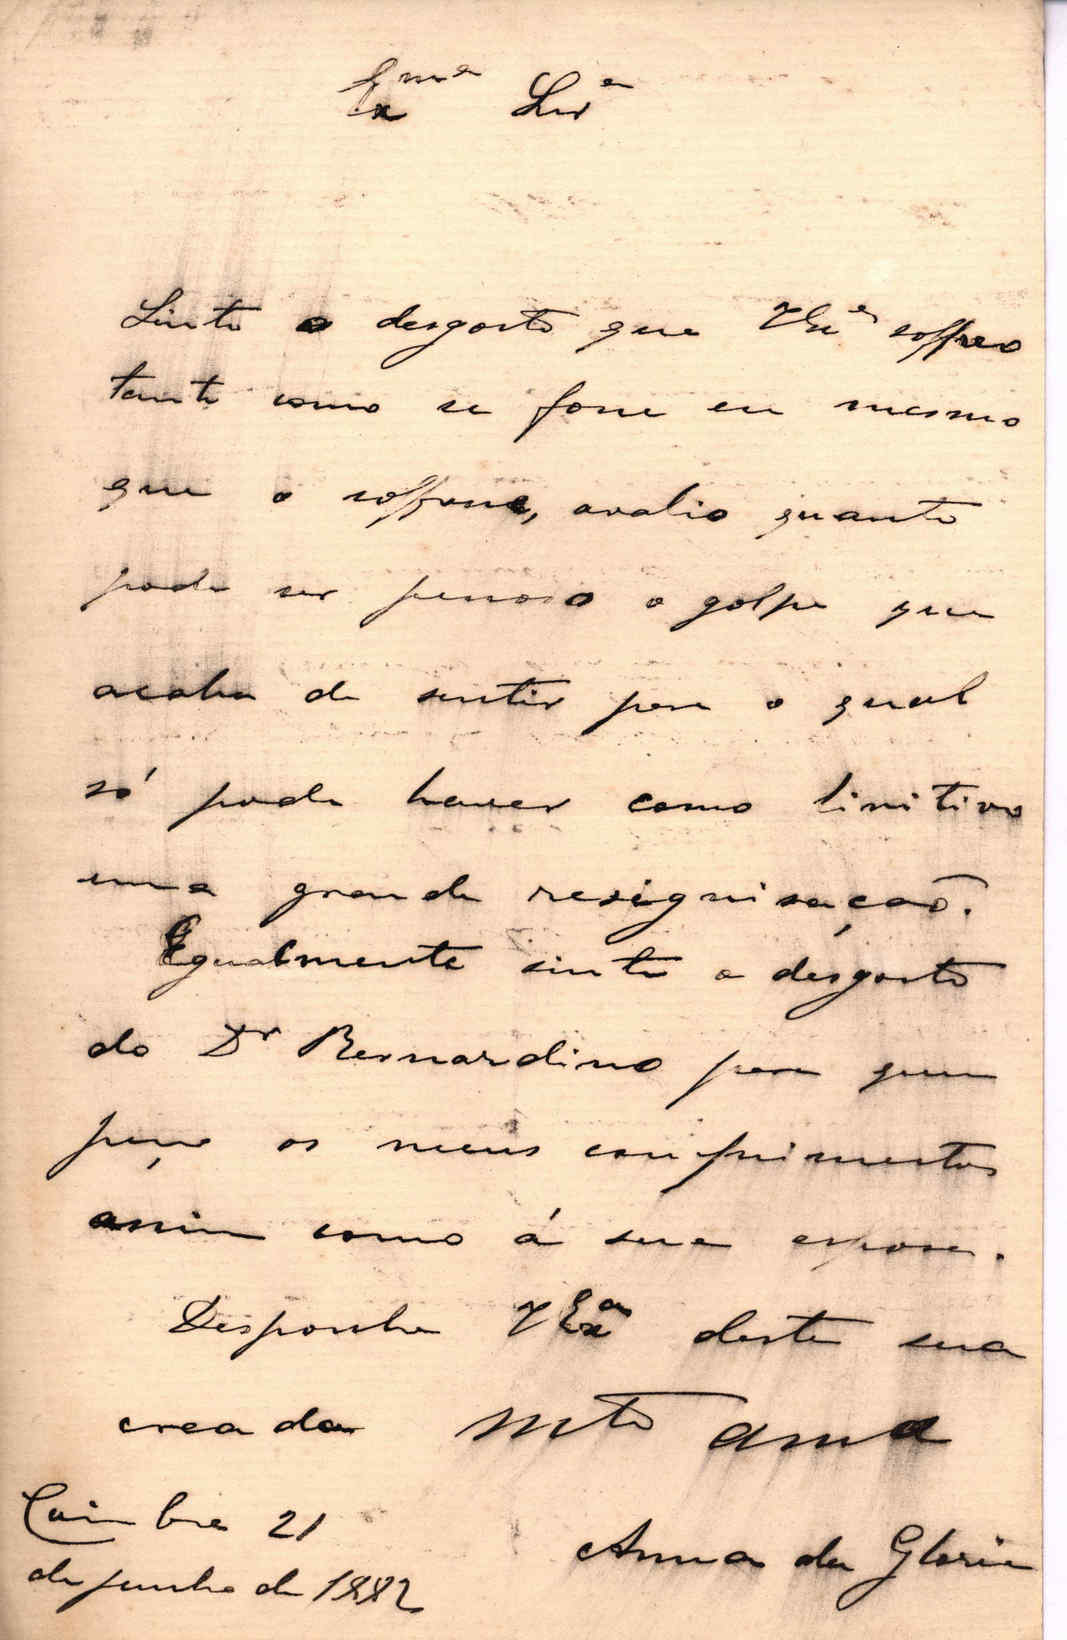 Exma Snra
Sinto o desgosto que VExa soffreo
tanto como se fosse eu mesmo
que o soffresse, avalio quanto
pode ser penoso o golpe que
acaba de sentir para o qual
só pode haver como linitivo
uma grande resignisação.
Egualmente sinto o desgosto
do Dr Bernardino para quem
peço os meus comprimentos
assim como á sua esposa.
Desponha VExa desta sua
creada mto ama
Coimbra 21
de junho de 1882
Anna da Gloria